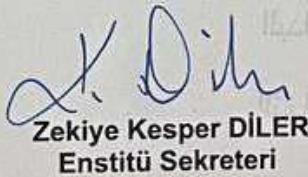 Zekiye Kesper DİLER
Enstitü Sekreteri